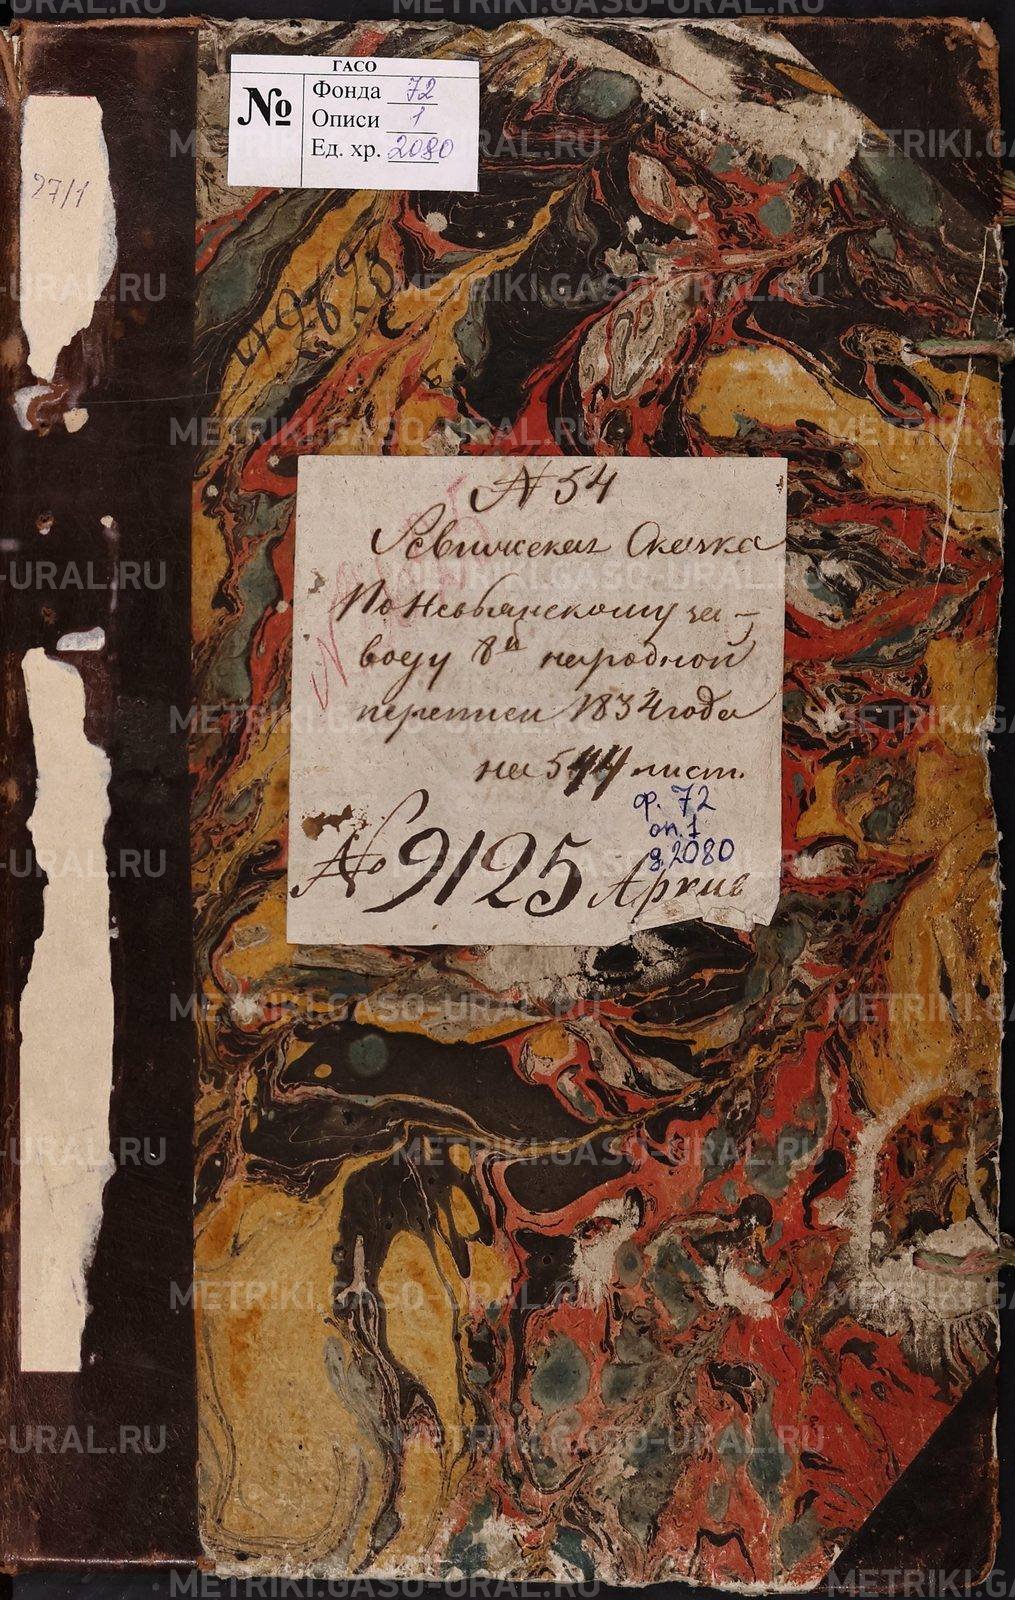 ГАСО
№
Фонда 72
Описи 1
Ед. хр. 2080
27/1
№ 54
Ревижская Скаска
По Невьянскому за-
воду 8й народной
переписи 1834 года
на 544 лист.
ф. 72
оп. 1
д. 2080
№ 9125 Архив
METRIKI.GASO-URAL.RU